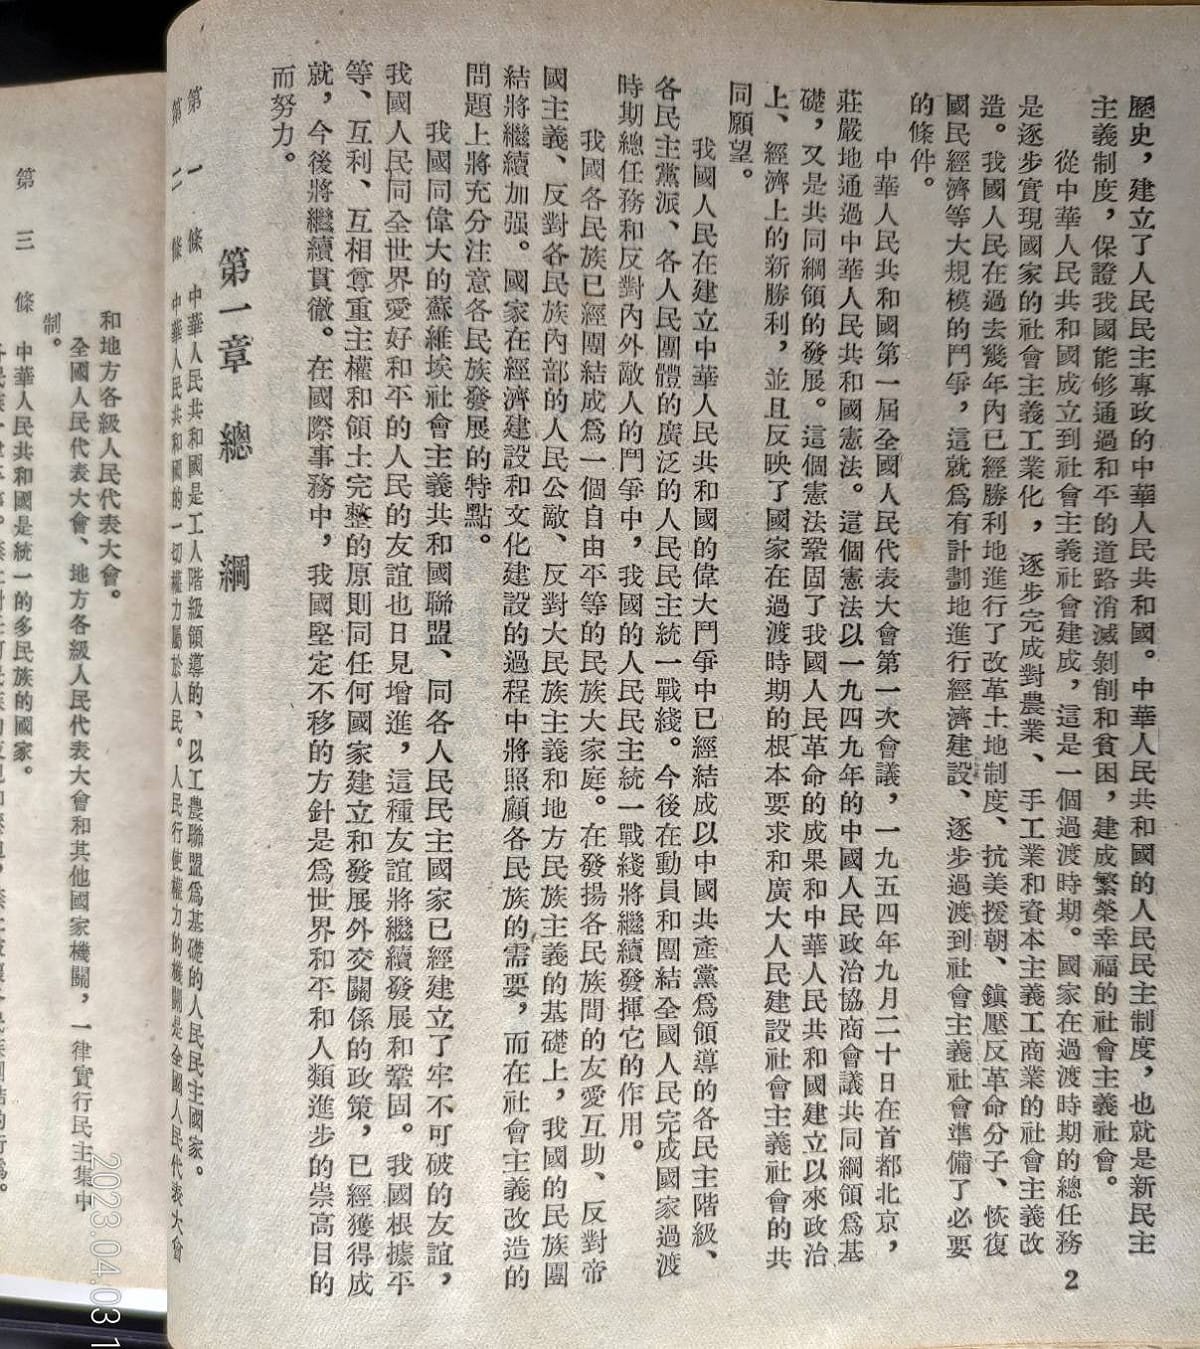 歷史，建立了人民民主專政的中華人民共和國。中華人民共和國的人民民主制度，也就是新民主
主義制度，保證我國能够通過和平的道路消滅剝削和貧困，建成繁榮幸福的社會主義社會。
從中華人民共和國成立到社會主義社會建成，這是一個過渡時期。國家在過渡時期的總任務
是逐步實現國家的社會主義工業化，逐步完成對農業、手工業和資本主義工商業的社會主義改
造。我國人民在過去幾年內已經勝利地進行了改革土地制度、抗美援朝、鎮壓反革命分子、恢復
國民經濟等大規模的鬥爭，這就爲有計劃地進行經濟建設、逐步過渡到社會主義社會準備了必要
的條件。
中華人民共和國第一屆全國人民代表大會第一次會議，一九五四年九月二十日在首都北京，
莊嚴地通過中華人民共和國憲法。這個憲法以一九四九年的中國人民政治協商會議共同綱領爲基
礎，又是共同綱領的發展。這個憲法鞏固了我國人民革命的成果和中華人民共和國建立以來政治
上、經濟上的新勝利，並且反映了國家在過渡時期的根本要求和廣大人民建設社會主義社會的共
同願望。
我國人民在建立中華人民共和國的偉大鬥爭中已經結成以中國共產黨爲領導的各民主階級、
各民主黨派、各人民團體的廣泛的人民民主統一戰綫。今後在動員和團結全國人民完成國家過渡
時期總任務和反對內外敵人的鬥爭中，我國的人民民主統一戰綫將繼續發揮它的作用。
我國各民族已經團結成爲一個自由平等的民族大家庭。在發揚各民族間的友愛互助、反對帝
國主義、反對各民族內部的人民公敵、反對大民族主義和地方民族主義的基礎上，我國的民族團
結將繼續加强。國家在經濟建設和文化建設的過程中將照顧各民族的需要，而在社會主義改造的
問題上將充分注意各民族發展的特點。
我國同偉大的蘇維埃社會主義共和國聯盟、同各人民民主國家已經建立了牢不可破的友誼，
我國人民同全世界愛好和平的人民的友誼也日見增進，這種友誼將繼續發展和鞏固。我國根據平
等、互利、互相尊重主權和領土完整的原則同任何國家建立和發展外交關係的政策，已經獲得成
就，今後將繼續貫徹。在國際事務中，我國堅定不移的方針是爲世界和平和人類進步的崇高目的
而努力。
第一章 總綱
第一條 中華人民共和國是工人階級領導的、以工農聯盟爲基礎的人民民主國家。
第二條 中華人民共和國的一切權力屬於人民。人民行使權力的機關是全國人民代表大會
2
和地方各級人民代表大會。
全國人民代表大會、地方各級人民代表大會和其他國家機關，一律實行民主集中
制。
第三條 中華人民共和國是統一的多民族的國家。
2023.04.03 1